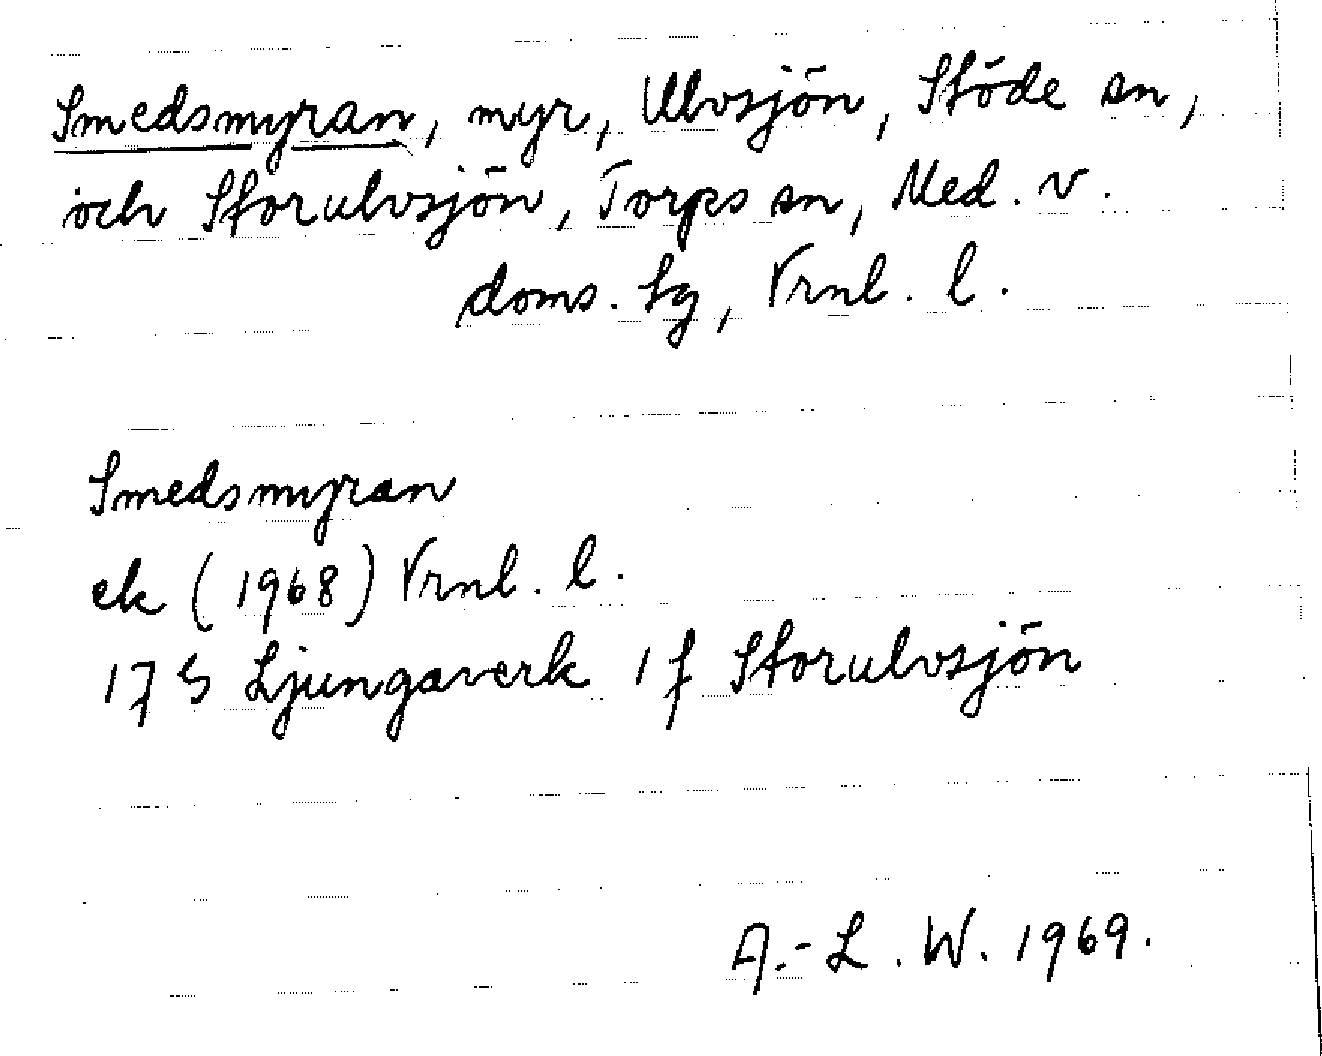 Smedsmyran, myr, Ulvsjön, Stöde sn,
och Storulvsjön, Torps sn, Med. v.
doms. sg, Vrnl. l.
Smedsmyran
ek (1968) Vrnl. l.
17 S Ljungaverk 1 f Storulvsjön
A.-L. W. 1969.